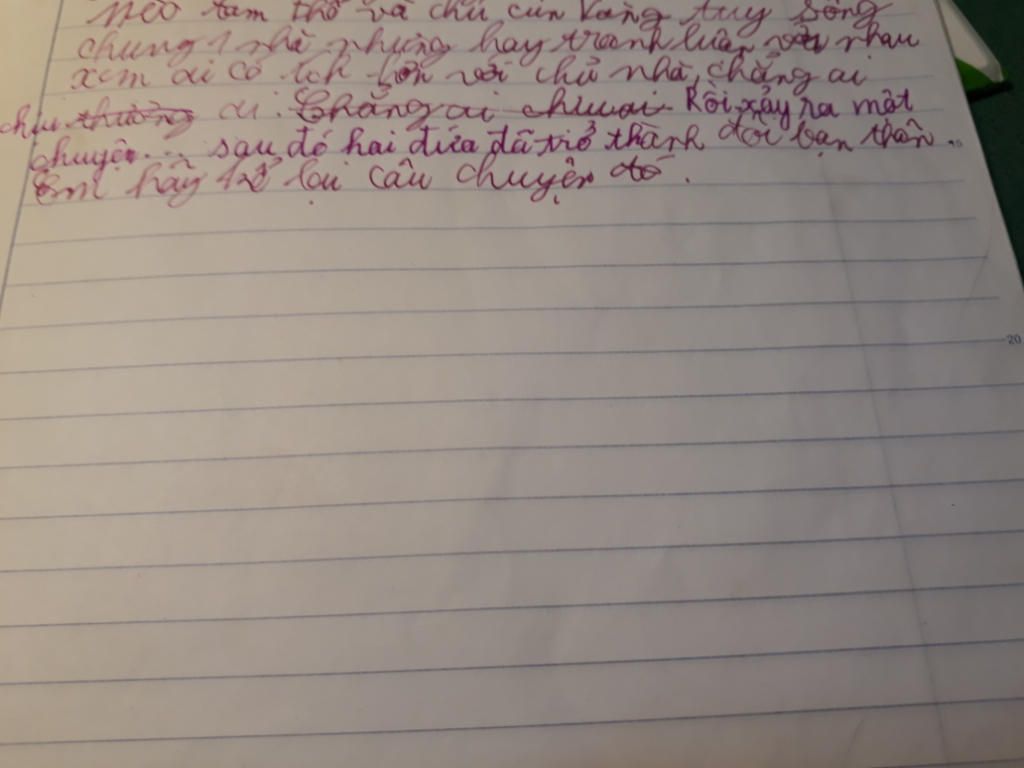 Mèo tam thể và chú cún Vàng tuy sống
chung 1 nhà nhưng hay tranh luận với nhau
xem ai có ích hơn với chủ nhà, chẳng ai
chịu thường ai. Chẳng ai chịu ai Rồi xảy ra một
chuyện... sau đó hai đứa đã trở thành đôi bạn thân.
Em hãy kể lại câu chuyện đó.
20